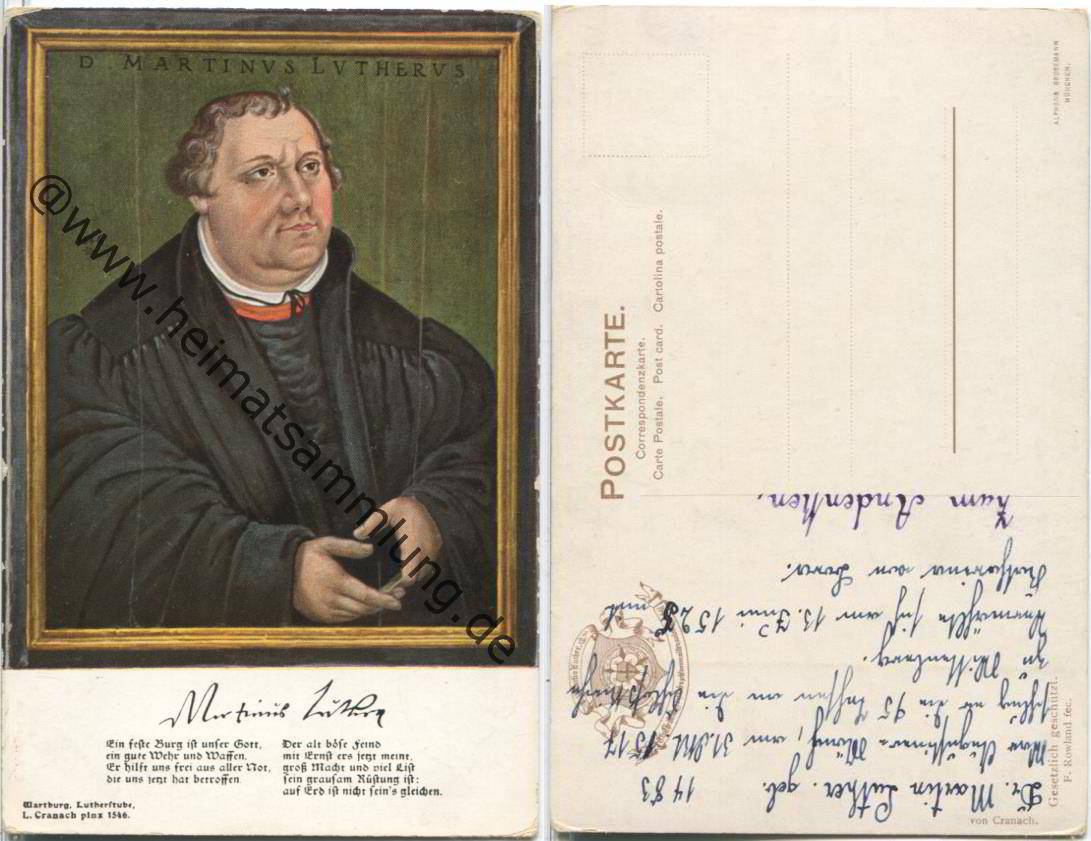 D. MARTINVS LVTHERVS
Martinus Luther
Ein feste Burg ist unser Gott,
ein gute Wehr und Waffen.
Er hilft uns frei aus aller Not,
die uns jetzt hat betroffen.
Der alt böse Feind
mit Ernst ers jetzt meint,
groß Macht und viel List
sein grausam Rüstung ist:
auf Erd ist nicht sein's gleichen.
Wartburg, Lutherstube,
L. Cranach pinx 1546.
@www.heimatsammlung.de
POSTKARTE.
Correspondenzkarte.
Carte Postale. Post card. Cartolina postale.
ALPHONS BRUCKMANN
MÜNCHEN.
Dr. Martin Luther geb. 1483
war Augustiner-Mönch, am 31. Okt. 1517
schlug er die 95 Thesen an die Schloßkirche
zu Wittenberg.
Vermählte sich am 13. Juni 1525 mit
Katharina von Bora.
Zum Andenken.
Gesetzlich geschützt.
F. Rowland fec.
von Cranach.